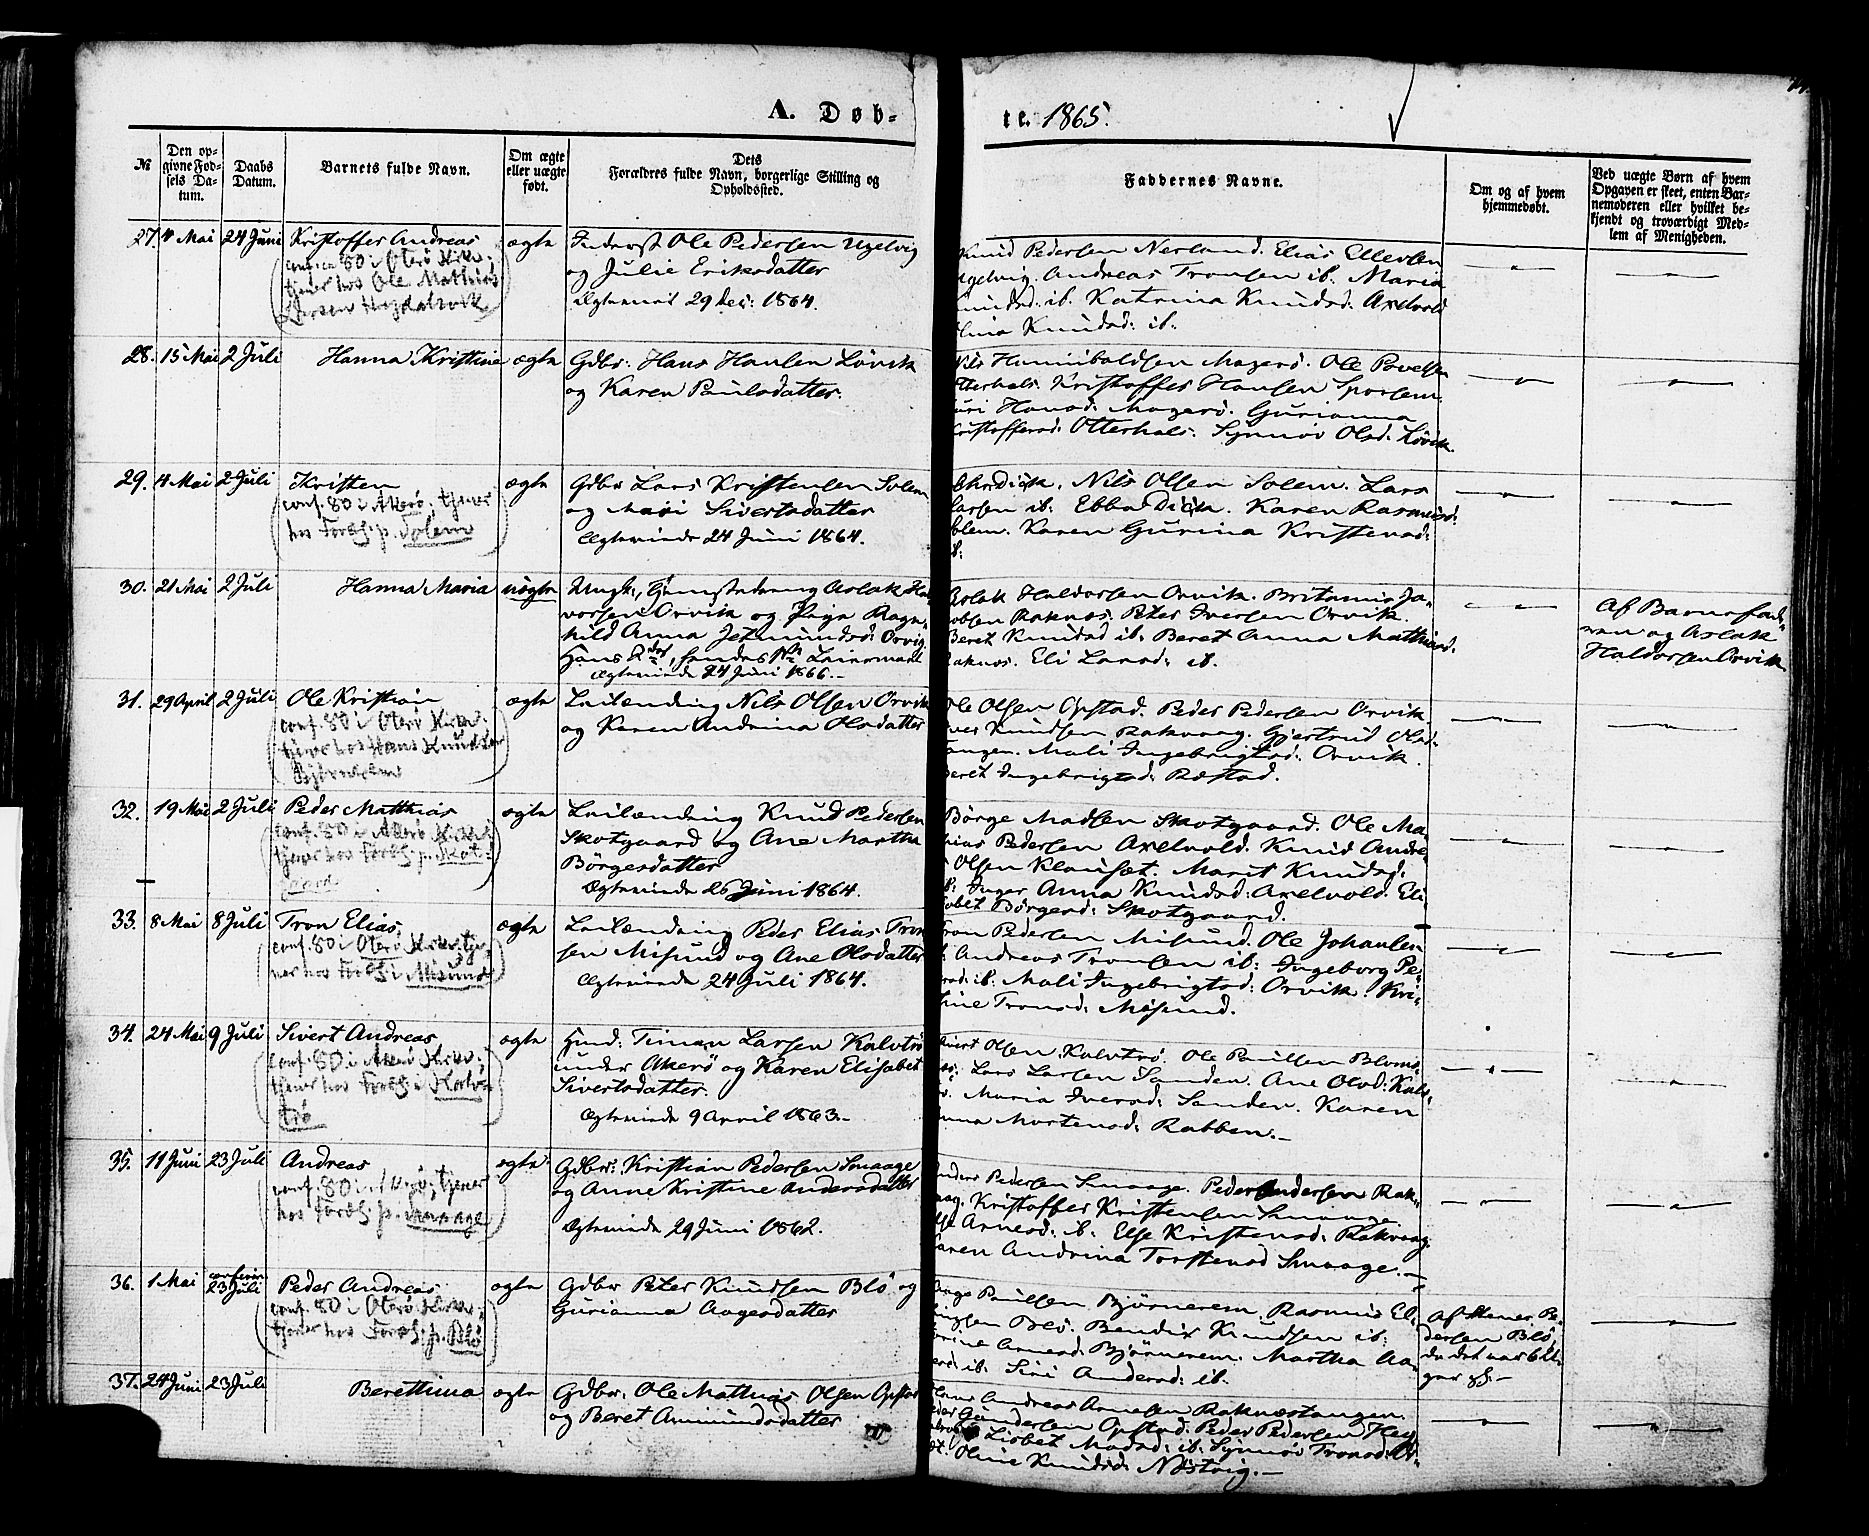 A. Døb-
te. 1865.
№
Den op-
givne Fød-
sels Da-
tum.
Daabs
Datum.
Barnets fulde Navn.
Om ægte
eller uægte
født.
Dets
Forældres fulde Navn, borgerlige Stilling og
Opholdssted.
Faddernes Navne.
Om og af hvem
hjemmedøbt.
Ved uægte Børn af hvem
Opgaven er skeet, enten Bar-
nemoderen eller hvilket be-
kjendt og troværdigt Med-
lem af Menigheden.
27. 4 Mai 24 Juni Kristoffer Andreas ægte
(conf. 80 i Oterö Kirke;
tjener hos Ole Mathias
Inderst Ole Pedersen Ugelvig
og Julie Eriksdatter
Ægteviet 29 Dec: 1864.
Knud Pedersen Nerland. Elias Ellevsen
Ugelvig. Andreas Tronsen ib. Maria
Knudsd: ib. Katrina Knudsd: Axelvold
Knudsd: ib.
28. 15 Mai 2 Juli Hanna Kristine ægte
Gdbr: Hans Hansen Lövik
og Karen Paulsdatter.
Nils Hanniboldsen Magerö. Ole Povelsen
Otterhals. Kristoffer Hansen Sporsem.
Guri Hansd: Magerö. Gurianna
Kristoffersd: Otterhals. Synnöv Olsd: Lövik.
29. 4 Mai 2 Juli Kristen ægte
(conf. 80 i Akerö; tjener
hos Foræld: p. Solem)
Gdbr Lars Kristensen Solem
og Mari Sivertsdatter
Ægteviede 24 Juni 1864.
Dick. Nils Olsen Solem. Lars
Larsen ib: Ebba Dick. Karen Rasmusd:
Solem. Karen Gurina Kristensd:
ib:
30. 21 Mai 2 Juli Hanna Maria uægte
Ungk:, Aslak Hal-
vorsen Orvik og Pige Ragn-
hild Anna Jetmundsd: Orvig
Hans 2den, hendes 1ste Leiermaal
Ægteviede 24 Juni 1866.-
Aslak Haldorsen Orvik. Britanus Ja-
kobsen Raknes. Peter Iversen Orvik.
Beret Knudsd ib: Beret Anna Mathiasd.
Raknes. Eli Larsd: ib.
Af Barnefad-
ren og Aslak
Haldorsen Orvik
31. 29 April 2 Juli Ole Kristian ægte
(conf. 80 i Oterö Kirke;
tjener hos Hans Knudsen
Leilænding Nils Olsen Orvik
og Karen Andrina Olsdatter
Ole Olsen Opstad. Peder Pedersen Orvik.
Iver Knudsen Rakvaag. Gjertrud Olsd:
Tangen. Mali Ingebrigtsd: Orvik.
Beret Ingebrigtsd: Røstad.
32. 19 Mai 2 Juli Peder Matthias ægte
(conf. 80 i Akerö Kirke;
tjener hos Foræld: p. Skot-
gaard)
Leilænding Knud Pedersen
Skotgaard og Ane Martha
Börgesdatter
Ægteviede 26 Juni 1864.
Börge Madsen Skotgaard. Ole Ma-
thias Pedersen Axelvold. Knud Andre-
as Olsen Klauset. Marit Knudsd:
ib: Inger Anna Knudsd: Axelvold. Eli-
sabet Börgesd: Skotgaard.
33. 8 Mai 8 Juli Tron Elias ægte
(conf. 80 i Oterö Kirke; tje-
ner hos Foræld: i Misund)
Leilænding Peder Elias Tron-
sen Misund og Ane Olsdatter
Ægteviede 24 Juli 1864.
Tron Pedersen Misund. Ole Johansen
ib: Andreas Tronsen ib: Ingeborg Pe-
dersd: ib. Mali Ingebrigtsd: Orvik. Kri-
stine Tronsd: Misund.
34. 24 Mai 9 Juli Sivert Andreas ægte
(conf. 80 i Akerö Kirke;
tjener hos Foræld: i Kalv-
trö)
Husmd: Timan Larsen Kalvtrö
under Akerö og Karen Elisabet
Sivertsdatter.
Ægteviede 9 April 1863.-
Sivert Olsen Kalvtrö. Ole Paulsen Bloms-
næs: Lars Larsen Sanden. Ane Olsd: Kalv-
trö. Maria Iversd: Sanden. Karen
Anna Mortensd: Rabben.-
35. 11 Juni 23 Juli Andreas ægte
(conf. 80 i Akerö; tjener
hos Foræld: p. Smaage)
Gdbr: Kristian Pedersen Smaage
og Anne Kristine Andersdatter
Ægteviede 29 Juni 1862.
Anders Pedersen Smaage. Peder Andersen Rak-
vaag. Kristoffer Kristensen Smaage
Arnesd: ib: Else Kristensd: Rakvaag.
Karen Andrina Torstensd Smaage.-
36. 1 Mai 23 Juli Peder Andreas ægte
(conf. 80 i Oterö Kirke;
tjener hos Foræld: p. Blö)
Gdbr Peter Knudsen Blö og
Gurianna Aagesdatter
Aage Paulsen Björnerem. Rasmus El-
lingsen Blö. Bendix Knudsen ib:
Arnesd: Björnerem. Martha Aa-
gesd: ib. Siri Andersd: ib.
Pe-
dersen Blö,
da det var 6 Da-
ger gl.-
37. 24 Juni 23 Juli Berettina ægte
Gdbr: Ole Mathias Olsen Opstad
og Beret Amundsdatter
Hans Andreas Arnesen Raknæstangen.
Peder Gundersen Opstad. Peder Pedersen
Lisbet Madsd: ib: Synnöv Tronsd:
Oline Knudsd: Næstvig.-